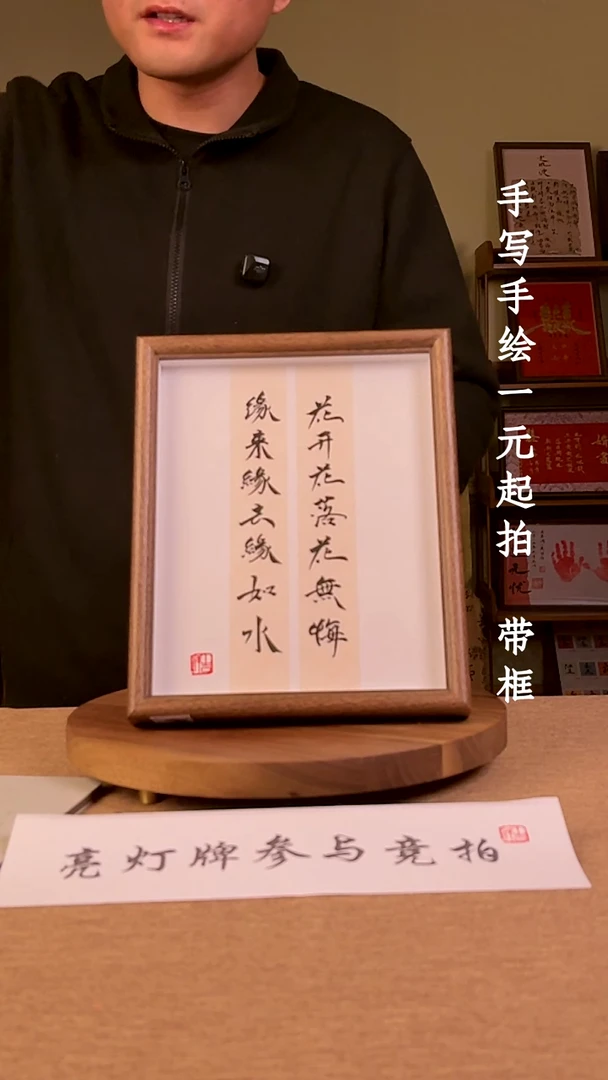 花开花落花無悔
缘来緣去緣如水
手写手绘一元起拍 带框
亮灯牌参与竞拍
无忧